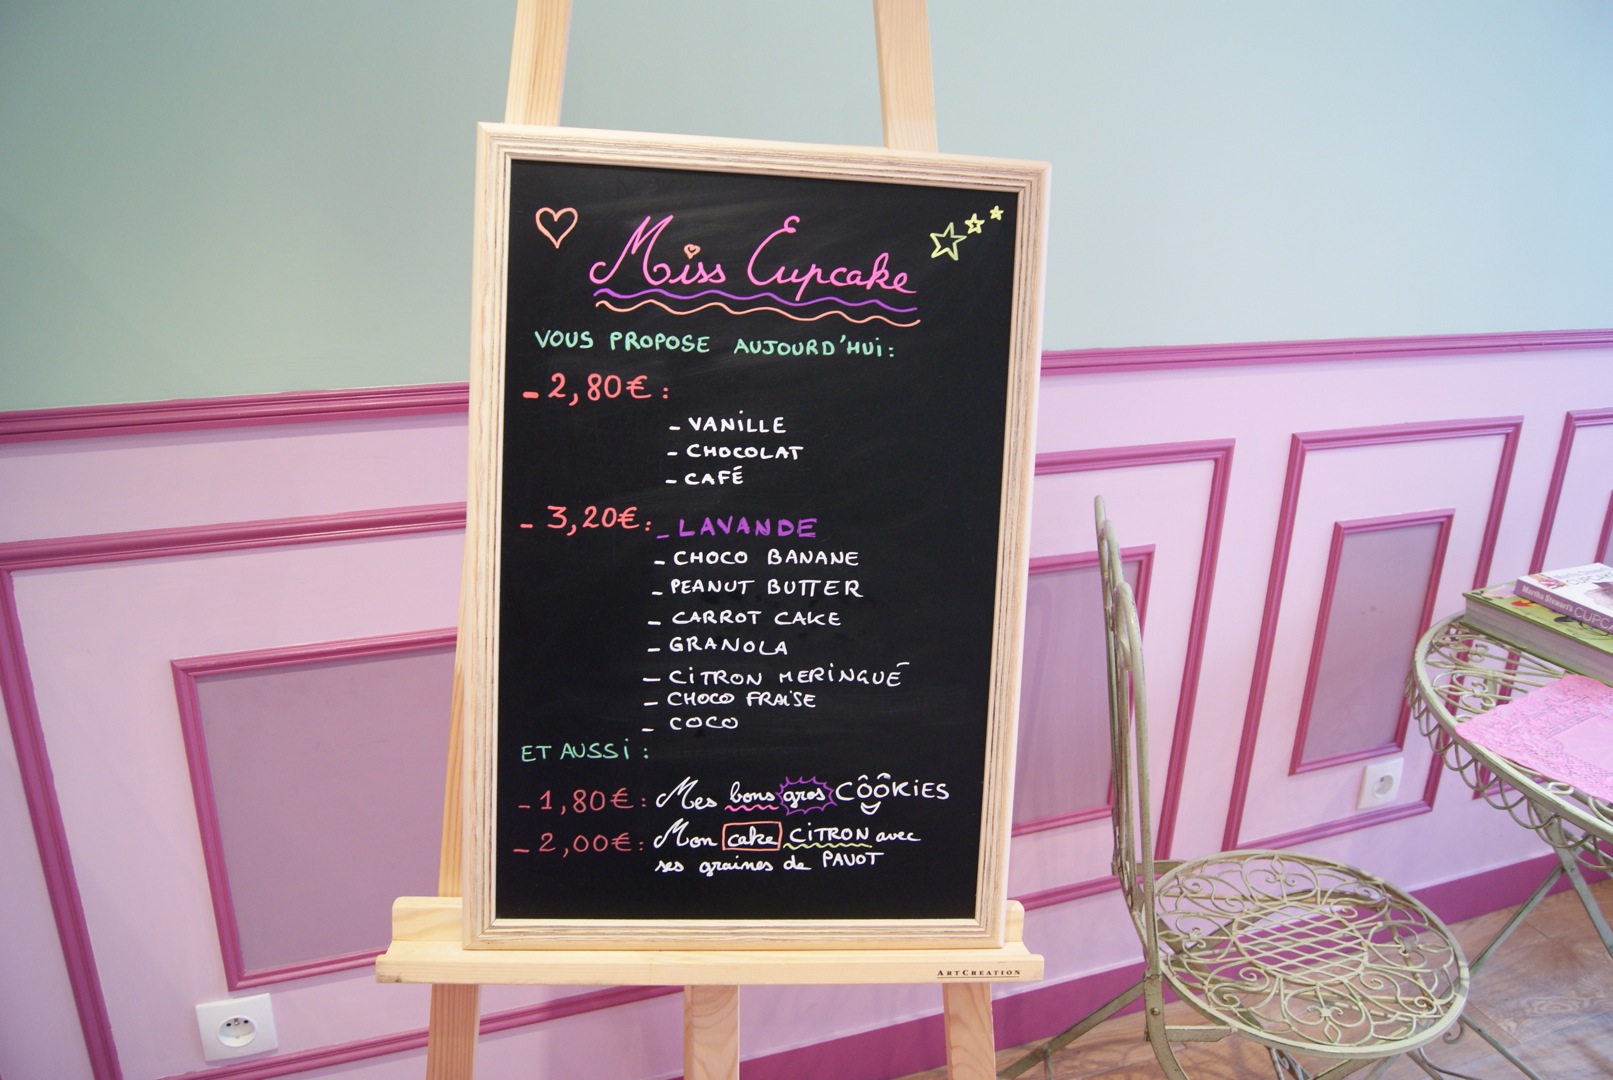 Miss Cupcake
VOUS PROPOSE AUJOURD'HUi:
- 2,80€ :
- VANiLLE
- CHOCOLAT
- CAFÉ
- 3,20€ : - LAVANDE
- CHOCO BANANE
- PEANUT BUTTER
- CARROT CAKE
- GRANOLA
- CiTRON MERiNGUÉ
- CHOCO FRAiSE
- COCO
ET AUSSi :
- 1,80€ : Mes bons gros COOKiES
- 2,00€ : Mon cake CiTRON avec
ses graines de PAVOT
ARTCREATION
Martha Stewart's